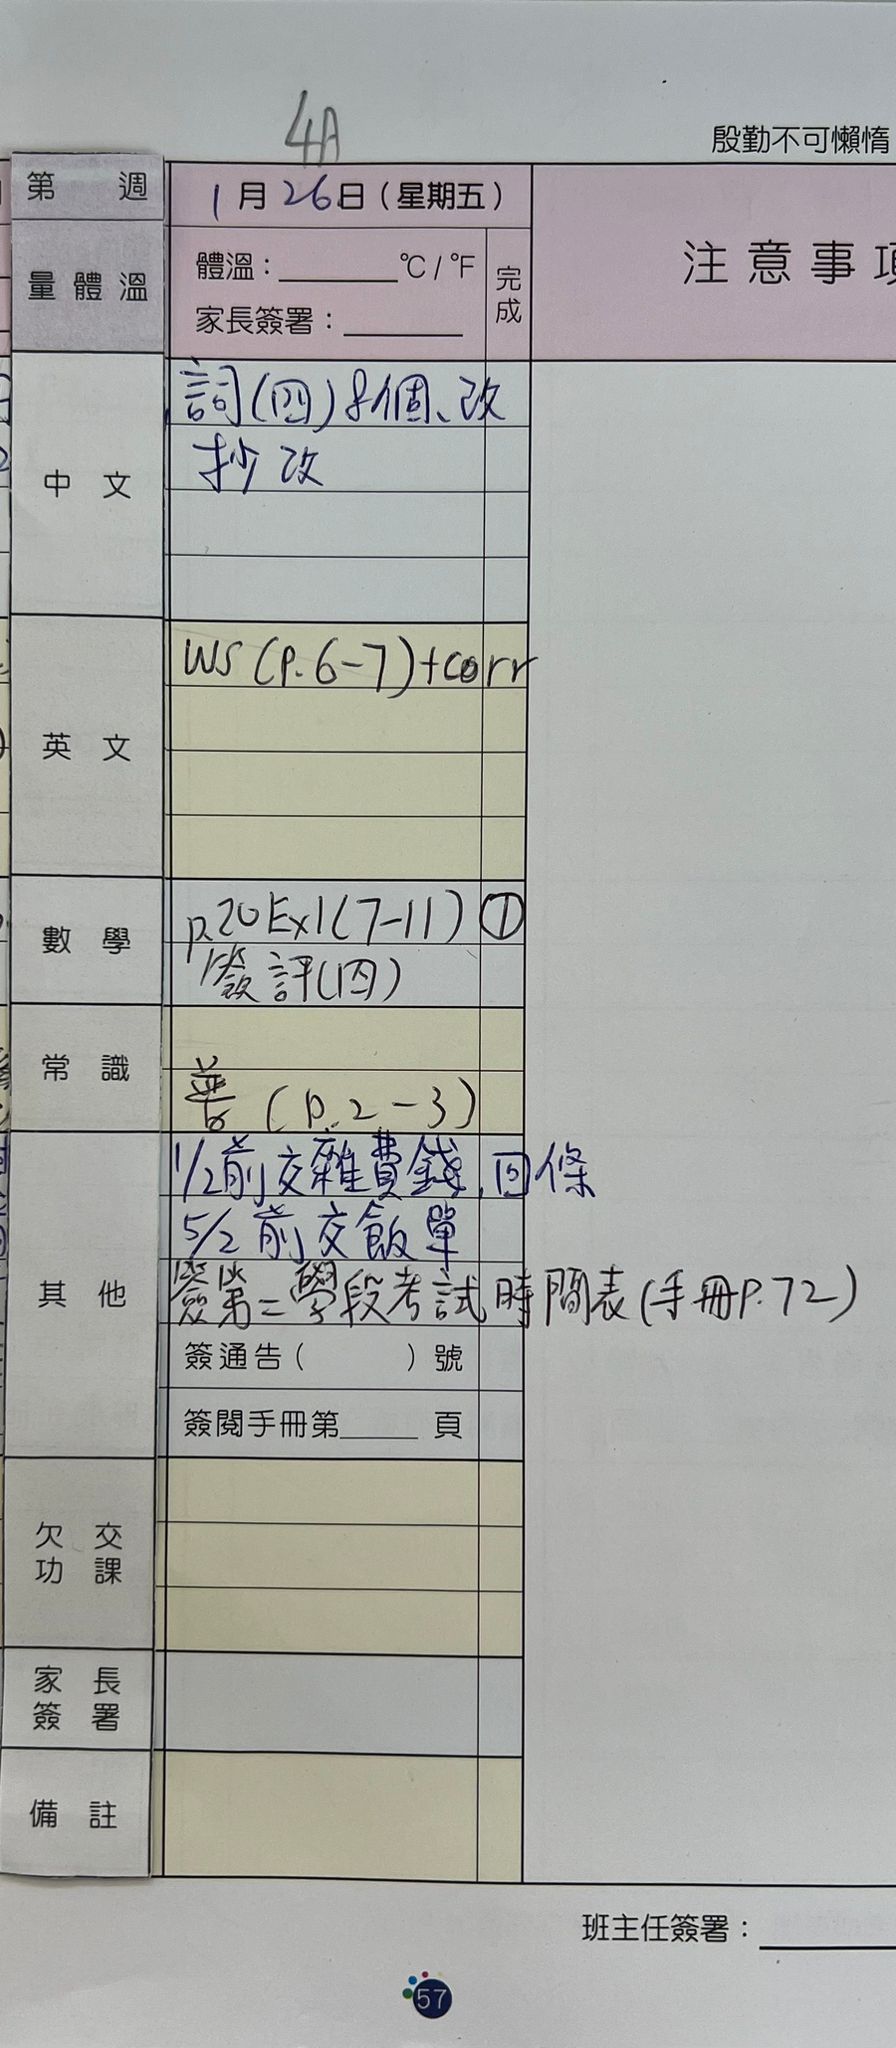 4A
殷勤不可懶惰
第 週
1月26日(星期五)
注意事項
量體溫
體溫：______°C/°F
完成
家長簽署：______
中文
詞(四)8個、改
抄改
英文
WS(P.6-7)+corr
數學
p.20Ex1(7-11) ①
簽評(四)
常識
普(p.2-3)
其他
1/2前交雜費錢、回條
5/2前交飯單
簽第二學段考試時間表(手冊P.72)
簽通告( )號
簽閱手冊第____頁
欠交
功課
家長
簽署
備註
班主任簽署：
57